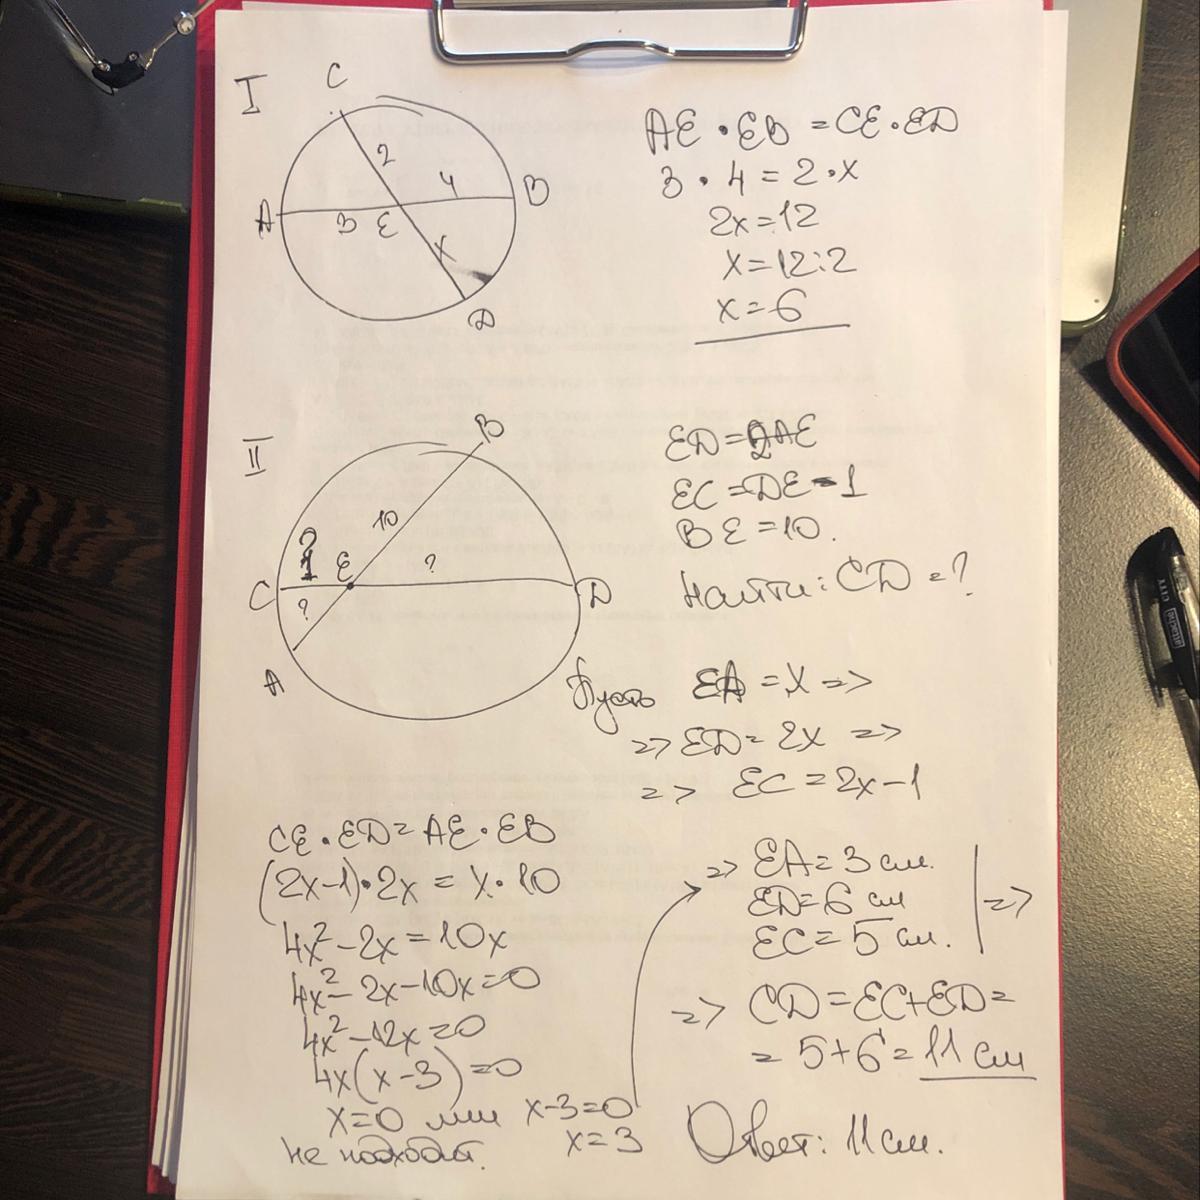 I
C
2
4
A
B
3
E
x
D
AE · EB = CE · ED
3 · 4 = 2 · x
2x = 12
x = 12 : 2
x = 6
II
B
10
?
1
E
?
C
D
?
A
ED = 2AE
EC = DE - 1
BE = 10.
Найти: CD = ?
Пусть EA = x =>
=> ED = 2x =>
=> EC = 2x - 1
CE · ED = AE · EB
(2x - 1) · 2x = x · 10
4x² - 2x = 10x
4x² - 2x - 10x = 0
4x² - 12x = 0
4x(x - 3) = 0
x = 0 или x - 3 = 0
не подходит. x = 3
=> EA = 3 см.
ED = 6 см
EC = 5 см. =>
=> CD = EC + ED =
= 5 + 6 = 11 см
Ответ: 11 см.
attache
CITY